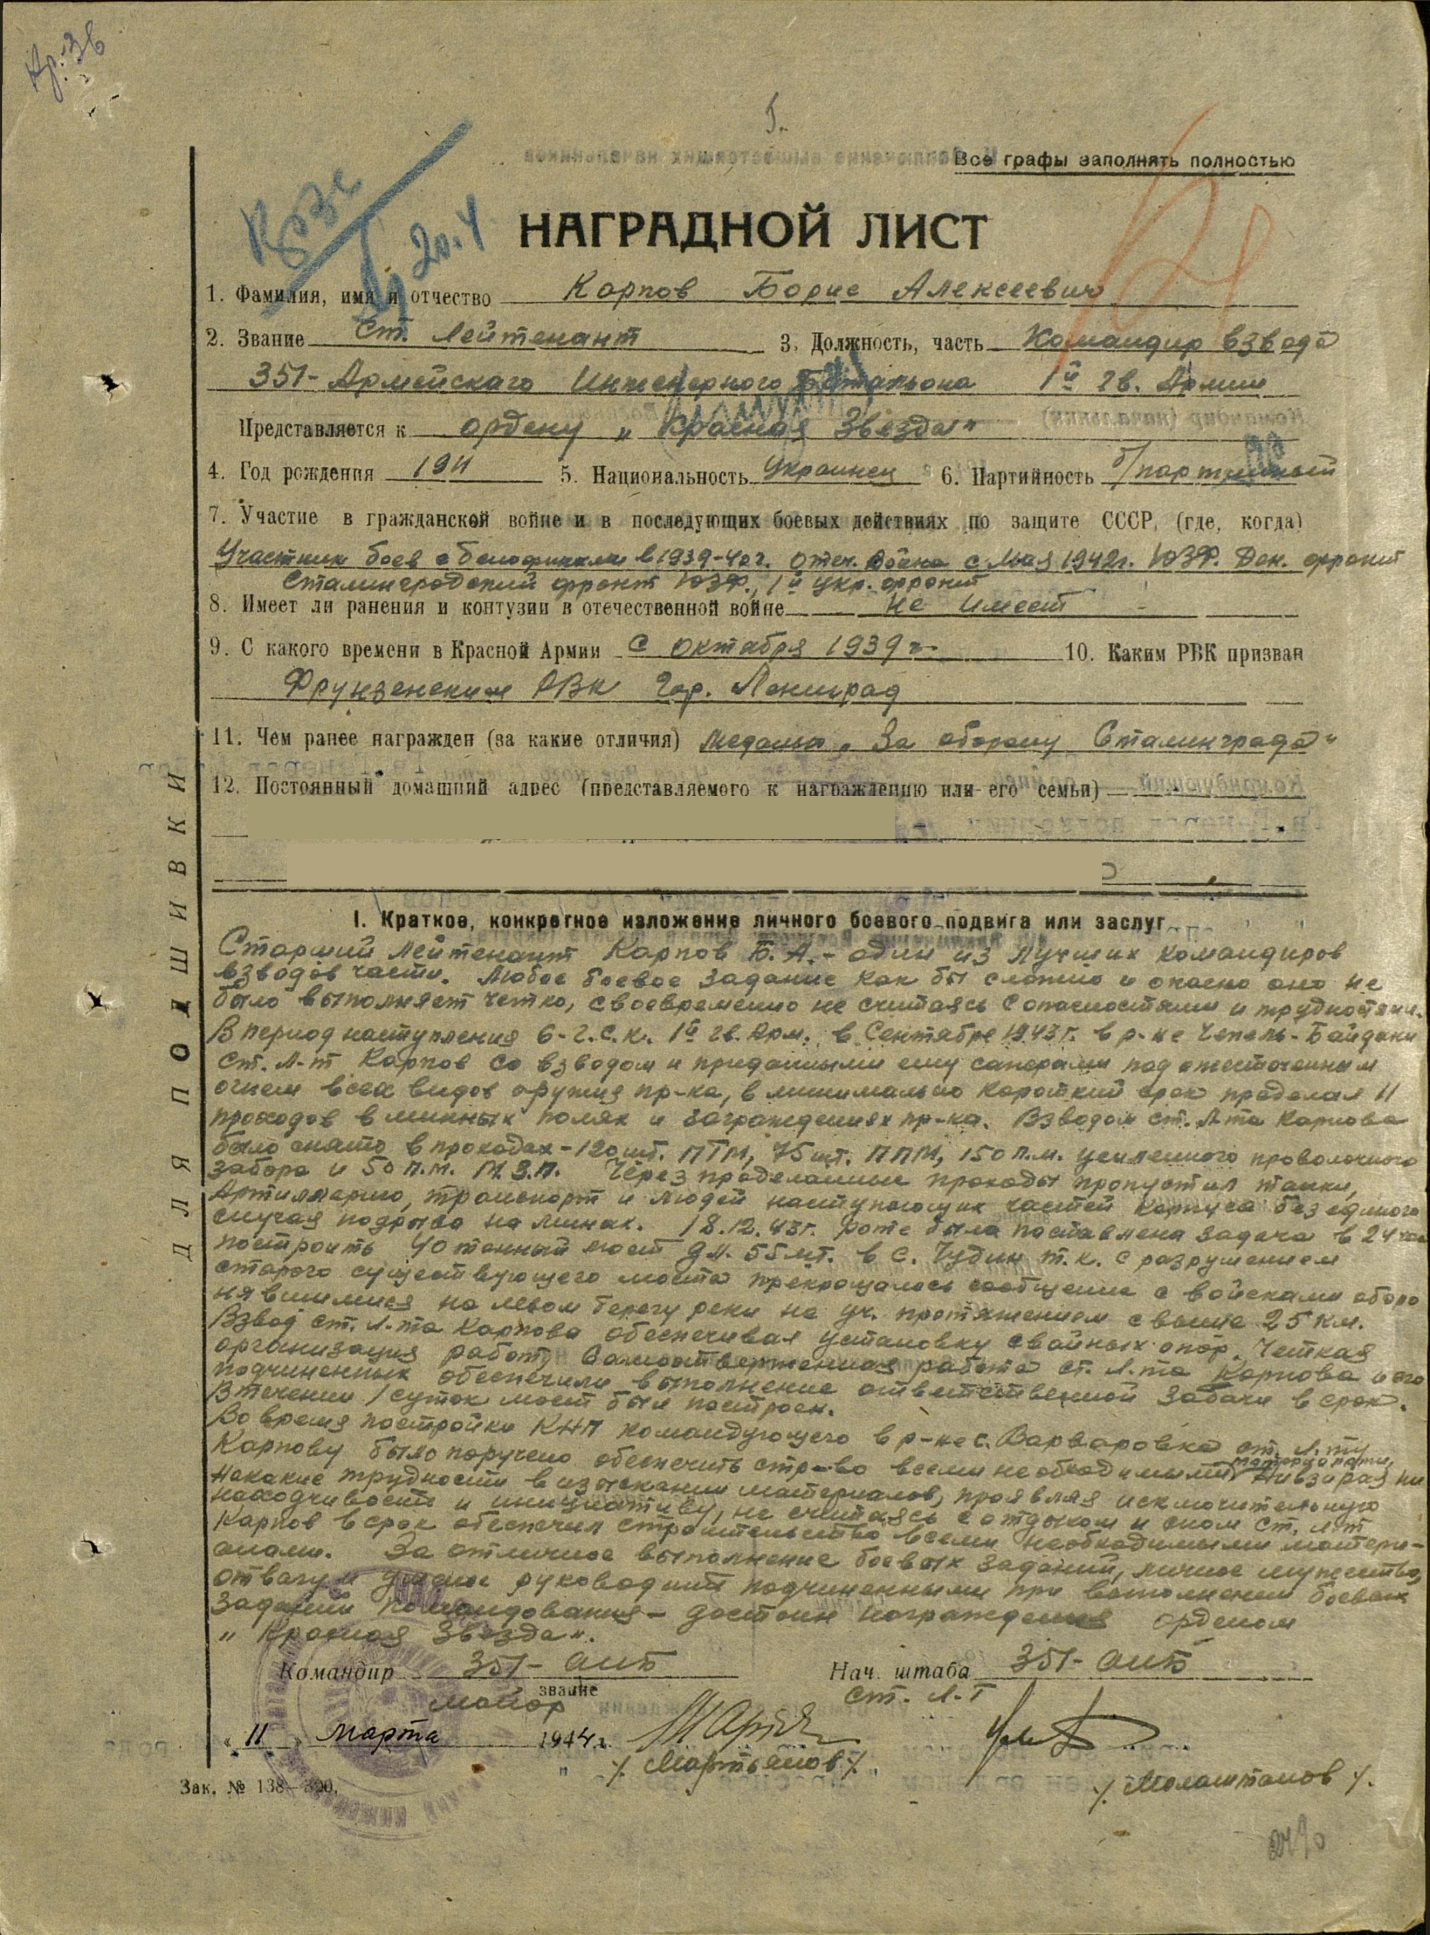 Кр. Зв
5.
Все графы заполнять полностью
Кр Зв
20.4
НАГРАДНОЙ ЛИСТ
1. Фамилия, имя и отчество Карпов Борис Алексеевич
2. Звание Ст. Лейтенант 3. Должность, часть Командир взвода
351- Армейского Инженерного Батальона 1й гв. Армии
Представляется к ордену „Красная Звезда"
4. Год рождения 1911 5. Национальность Украинец 6. Партийность б/партийный
7. Участие в гражданской войне и в последующих боевых действиях по защите СССР, (где, когда)
Участник боев с белофиннами в 1939-40 г. Отеч. Война с Мая 1942г. ЮЗФ. Дон. фронт
Сталинградский фронт ЮЗФ., 1й Укр. фронт
8. Имеет ли ранения и контузии в отечественной войне не имеет
9. С какого времени в Красной Армии с октября 1939 г. 10. Каким РВК призван
Фрунзенским РВК гор. Ленинград
11. Чем ранее награжден (за какие отличия) медалью „За оборону Сталинграда"
12. Постоянный домашний адрес (представляемого к награждению или его семьи)
ДЛЯ ПОДШИВКИ
I. Краткое, конкретное изложение личного боевого подвига или заслуг
Старший лейтенант Карпов Б. А. - один из лучших командиров
взводов части. Любое боевое задание как бы сложно и опасно оно не
было выполняет четко, своевременно не считаясь с опасностями и трудностями.
В период наступления 6-г.с.к. 1й гв. Арм. в Сентябре 1943 г. в р-не Чепель - Байдаки
ст. л-т Карпов со взводом и приданными ему саперами под ожесточенным
огнем всех видов оружия пр-ка, в минимально короткий срок проделал 11
проходов в минных полях и заграждениях пр-ка. Взводом ст. л-та Карпова
было снято в проходах - 120 шт. ПТМ, 75 шт. ППМ, 150 п.м. усиленного проволочного
забора и 50 п.м. М.З.П. Через проделанные проходы пропустил танки,
Артиллерию, транспорт и людей наступающих частей корпуса без единого
случая подрыва на минах. 18.12.43г. роте была поставлена задача в 24 час
построить 40 тонный мост дл. 55 мт. в с. Чудин т.к. с разрушением
старого существующего моста прекращалось сообщение с войсками оборо
нявшимися на левом берегу реки на уч. протяжением свыше 25 км.
Взвод ст. л-та Карпова обеспечивал установку свайных опор. Четкая
организация работ, самоотверженная работа ст. л-та Карпова и его
подчиненных обеспечили выполнение ответственной задачи в срок.
В течении 1 суток мост был построен.
Во время постройки КНП командующего в р-не с. Варваровка ст. л-ту
Карпову было поручено обеспечить стр-во всеми необходимыми материалами. Невзирая ни
на какие трудности в изыскании материалов, проявляя исключительную
находчивость и инициативу, не считаясь с отдыхом и сном ст. л-т
Карпов в срок обеспечил строительство всеми необходимыми матери-
алами. За отличное выполнение боевых заданий, личное мужество,
отвагу и умелое руководить подчиненными при выполнении боевых
заданий командования - достоин награждения орденом
„Красная Звезда".
Командир 351- аиб Нач. штаба 351- аиб
звание
майор ст. л-т
„11" Марта 1944 г.
/. Мартьянов /.
/. Малаштанов /.
Зак. № 138—390.